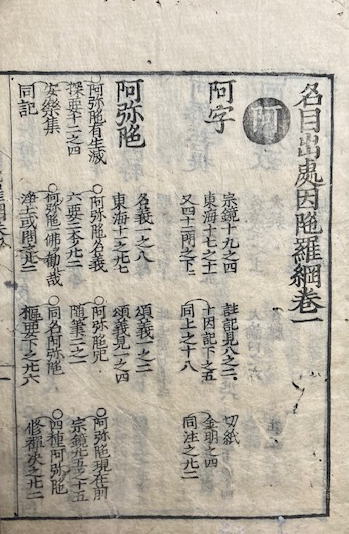 名目出處因陁羅網卷一
阿
阿字
宗鏡十九之四 註記見八之二 切紙
東海十七之十一 十因記下之五 金明之四
又四十二門之下 同上之十八 同注之卄二
阿弥陁
名義一之八 頌義一之二
東海十二之卄七 頌義見一之四
○阿弥陁有生滅 ○阿弥陁名義 ○阿弥陁呪 ○阿弥陁現在前
探要十二之四 六要二之卄二 隨筆三之二 宗鏡卄五之十五
安樂集 ○阿弥陁佛勸哉 ○同名阿弥陁 ○四種阿弥陁
同記 淨土或問之卄二 樞要下之卄六 修禅决之卄二